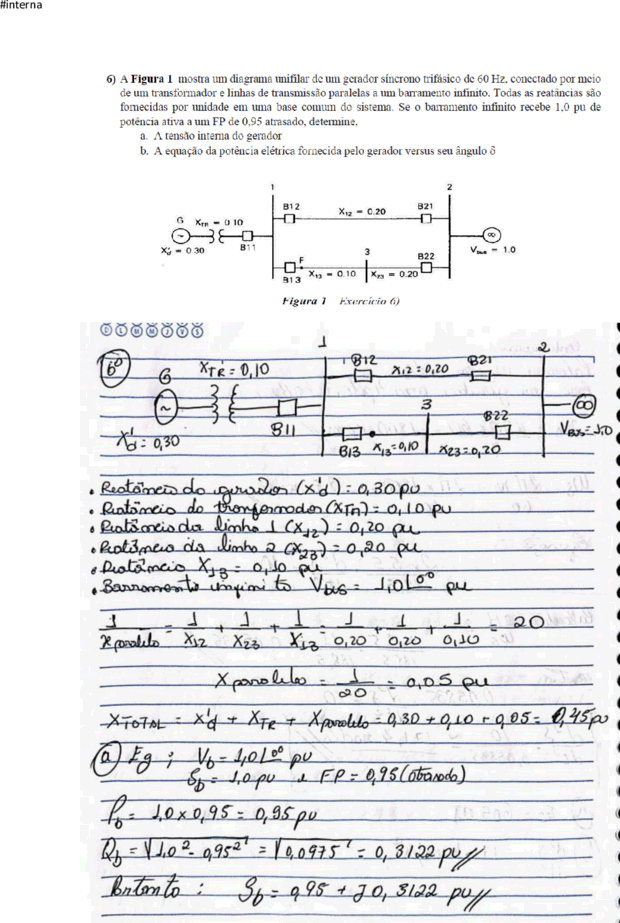 #interna
6) A Figura 1 mostra um diagrama unifilar de um gerador síncrono trifásico de 60 Hz, conectado por meio
de um transformador e linhas de transmissão paralelas a um barramento infinito. Todas as reatâncias são
fornecidas por unidade em uma base comum do sistema. Se o barramento infinito recebe 1,0 pu de
potência ativa a um FP de 0,95 atrasado, determine,
a. A tensão interna do gerador
b. A equação da potência elétrica fornecida pelo gerador versus seu ângulo δ
1 2
B12 X12 = 0.20 B21
G XTR = 0.10
B11
X'd = 0.30
∞
Vbus = 1.0
F 3 B22
B13 X13 = 0.10 X23 = 0.20
Figura 1 Exercício 6)
D L M M J V S
6º
1 2
G XTR = 0,10 B12 X12 = 0,20 B21
3 B22
X'd = 0,30 B11 B13 X13 = 0,10 X23 = 0,20
∞
VBUS = 1.0
• Reatância do gerador (X'd) = 0,30 pu
• Reatância do transformador (XTR) = 0,10 pu
• Reatância da linha 1 (X12) = 0,20 pu
• Reatância da linha 2 (X23) = 0,20 pu
• Reatância X13 = 0,10 pu
• Barramento infinito Vbus = 1,0∠0° pu
1/X paralelo = 1/X12 + 1/X23 + 1/X13 = 1/0,20 + 1/0,20 + 1/0,10 = 20
X paralelo = 1/20 = 0,05 pu
XTOTAL = X'd + XTR + Xparalelo = 0,30 + 0,10 + 0,05 = 0,45 pu
a) Eg ; Vb = 1,0∠0° pu
Sb = 1,0 pu e FP = 0,95 (atrasado)
Pb = 1,0 x 0,95 = 0,95 pu
Qb = √1,0² - 0,95² = √0,0975 = 0,3122 pu //
Portanto : Sb = 0,95 + J0,3122 pu //